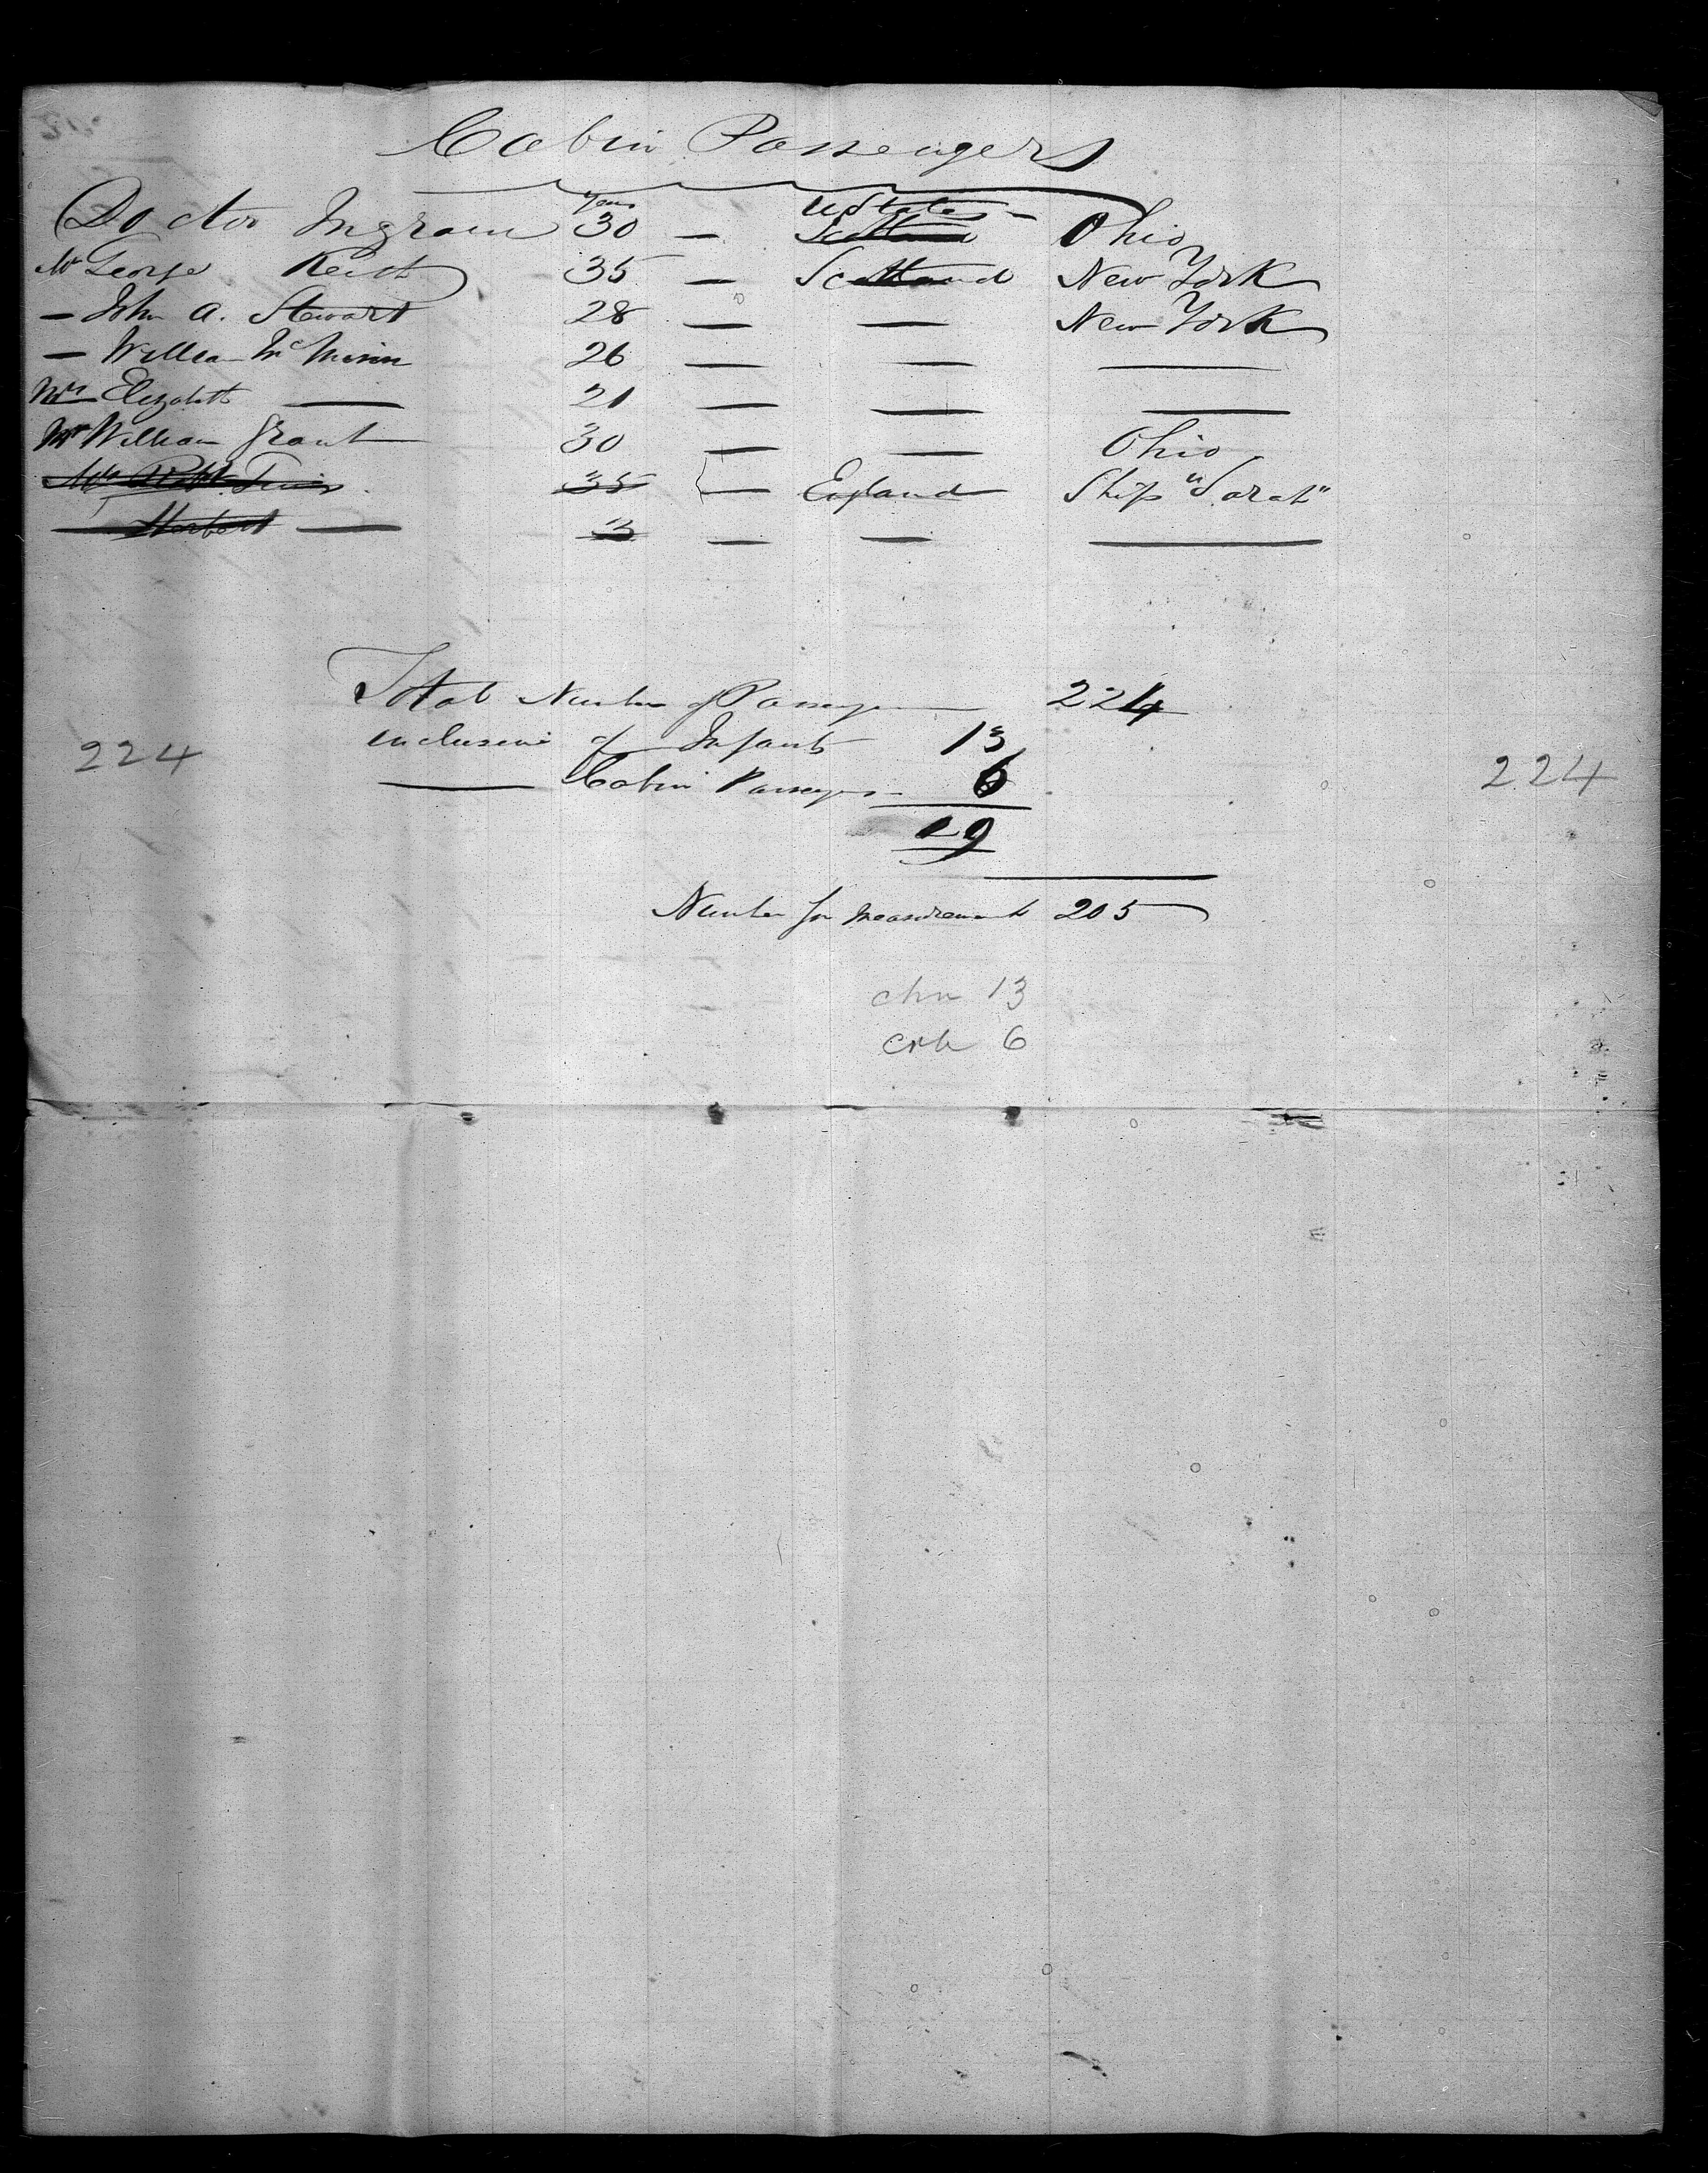 Cabin Passengers
Years
Doctor Ingram 30 — UStates Scotland Ohio
Mr George Keith 35 — Scotland New York
— John A. Stewart 28 — — New York
— William McMinn 26 — — —
Mrs Elizabeth — 21 — — —
Mr William Grant 30 — — Ohio
35 — England Ship "Sarah"
— Herbert — 3 — — —
Total Number of Passengers — 224
inclusive of Infants 13
— Cabin Passengers 6
19
224
224
Number for Measurement 205
chn 13
cab 6